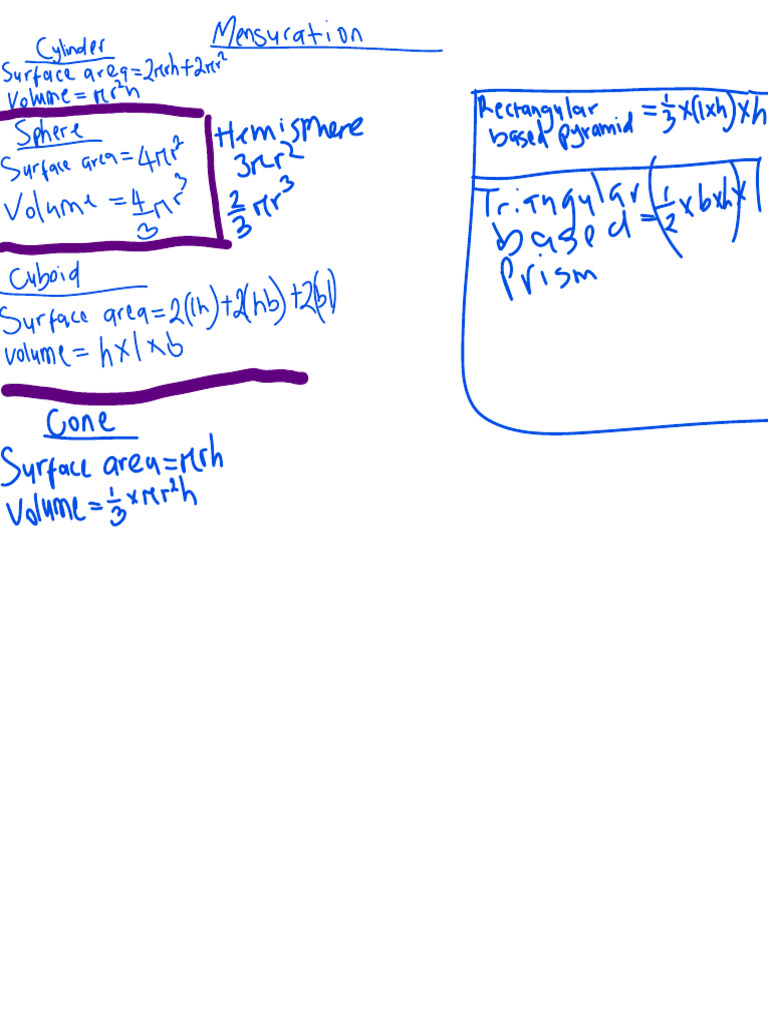 Mensuration
Cylinder
Surface area=2πrh+2πr²
Volume=πr²h
Sphere
Surface area=4πr²
Volume=4/3πr³
Hemisphere
3πr²
2/3πr³
Cuboid
Surface area=2(lh)+2(hb)+2(bl)
volume=h×l×b
Cone
Surface area=πrh
Volume=1/3×πr²h
Rectangular
based pyramid=1/3×(l×h)×h
Triangular
based=(1/2×b×h)×l
Prism